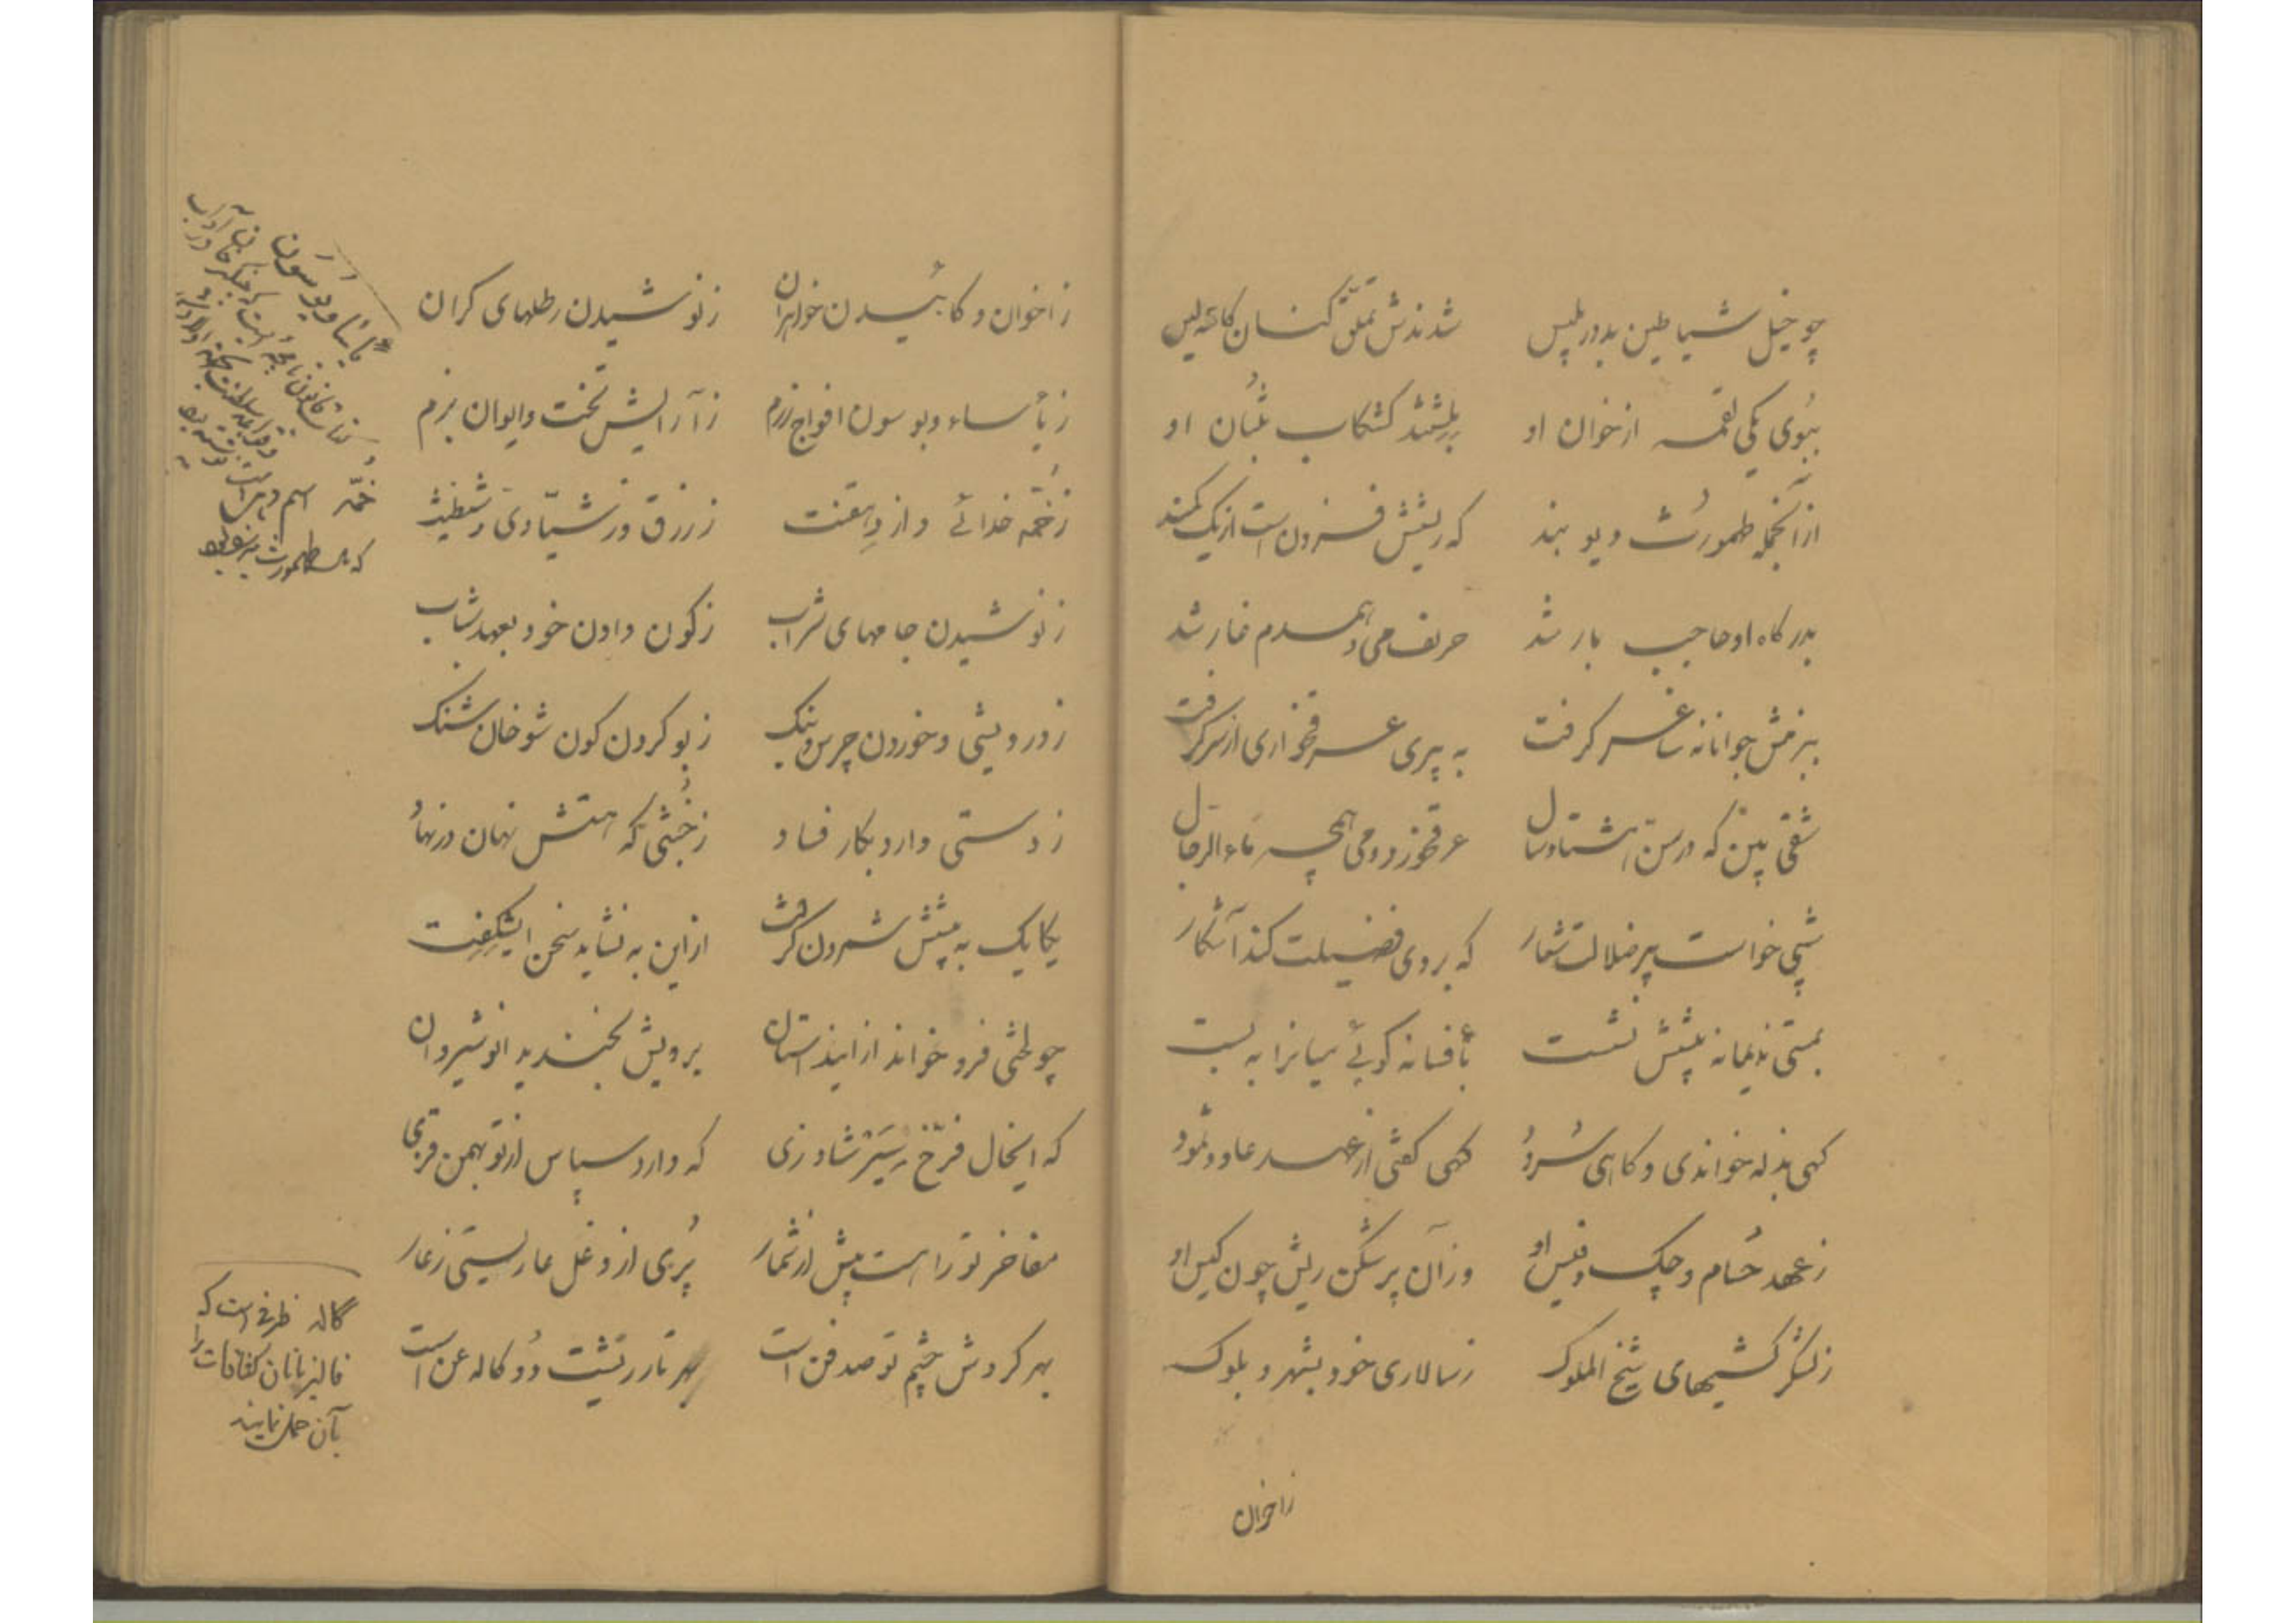 چو خیل شیاطین بدور بلیس شدندش تملق کنان کاسه لیس
ببوی یکی لقمه از خوان او او
از آنجمله طهمورث دیو بند که ریشش فزون است از یک کمند
بدرگاه او حاجب بار شد حریف می و همدم غار شد
ببزمش جوانانه ساغر گرفت به پیری عرقخواری از سر گرفت
شقی بین که در سن هشتاد سال عرق خوردومی همچه ماء الرجال
شبی خواست پیر ضلالت شعار که بروی فضیلت کند آشکار
بمستی ندیمانه پیشش نشست بأفسانه گوئی میانرا به بست
کهی بذله خواندی و کاهی سرود کهی گفتی از عهد عاد و ثمود
ز عهد حسام و چپک و فیس او وز آن پرشکن ریش چون کیس او
ز لشکر کشیهای شیخ الملوک ز سالاری خود بشهر و بلوک
ز اخوان
ز اخوان و کابیدن خواهران ز نوشیدن رطلهای کران
ز یأساء و بوسون افواج رزم ز آرایش تخت و ایوان بزم
ز خمه خدائی و از دهقنت ز زرق و ز شیادی و شیطنت
ز نوشیدن جامهای شراب ز کون دادن خود بعهد شباب
ز درویشی و خوردن چرس و بنک ز بو کردن کون شوخان شنک
ز دستی که دارد بکار فساد ز خبثی که هستش نهان در نهاد
یکایک به پیشش شمردن گرفت از این به نشاید سخن ای شگفت
چو لختی فرو خواند از اینداستان برویش بخندید انوشیروان
که ایخال فرخ سیر شاد زی که دارد سپاس از تو بهمن فری
مفاخر تو را است بیش از شمار پری از دغل عار لیستی ز عار
بهر گردش چشم تو صد فن است بهر تار ریشت دو کاله عن است
یاسا و یوسون
خمه اسم دهی است
که طهمورث
کاله ظرفی است که
فالیز بانان کثافات را
بآن حمل نمایند